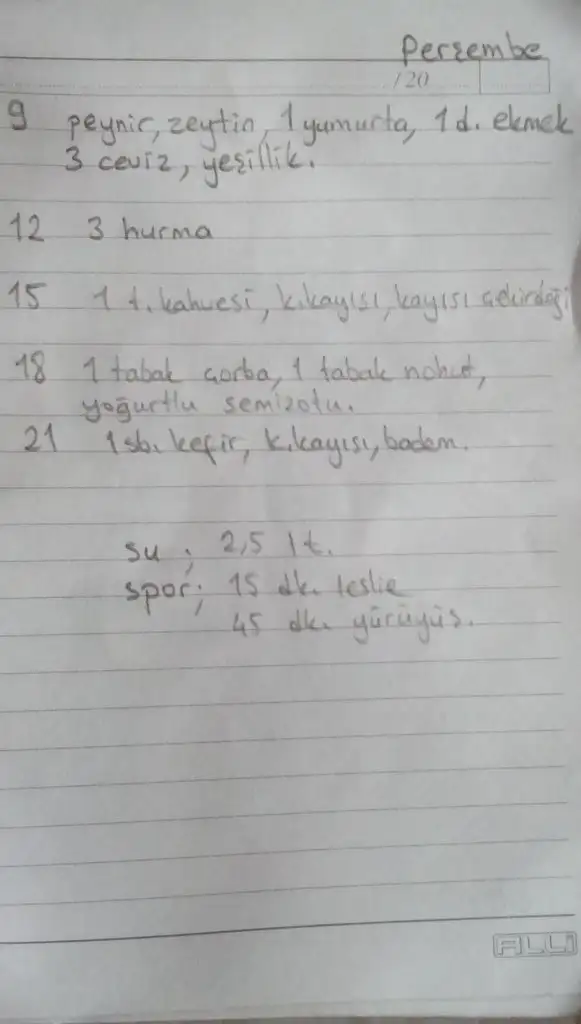 Perşembe
/20
9 peynir, zeytin, 1 yumurta, 1 d. ekmek
3 ceviz, yeşillik.
12 3 hurma
15 1 t. kahvesi, k.kayısı, kayısı çekirdeği
18 1 tabak çorba, 1 tabak nohut,
yoğurtlu semizotu.
21 1 sb. kefir, k.kayısı, badem.
su ; 2,5 lt.
spor; 15 dk. leslie
45 dk. yürüyüş.
ALLI